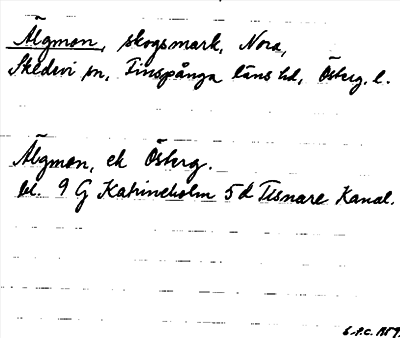 Älgmon, skogsmark, Nora,
Skedevi sn, Finspånga läns hd, Österg. l.
Älgmon, ek Österg.
bl. 9 G Katrineholm 5d Tisnare Kanal.